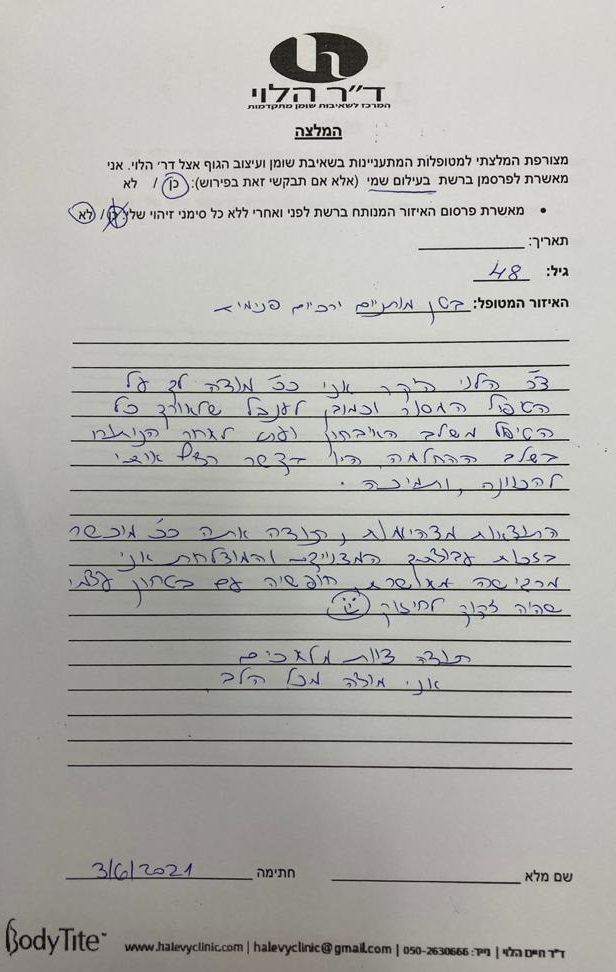 ד״ר הלוי
המרכז לשאיבות שומן מתקדמות
המלצה
מצורפת המלצתי למטופלות המתעניינות בשאיבת שומן ועיצוב הגוף אצל דר׳ הלוי. אני
מאשרת לפרסמן ברשת בעילום שמי (אלא אם תבקשי זאת בפירוש): כן / לא
• מאשרת פרסום האיזור המנותח ברשת לפני ואחרי ללא כל סימני זיהוי שלי: כן / לא
תאריך:
גיל: 48
האיזור המטופל: בטן מותניים ירכיים פנימי
ד״ר הלוי היקר אני ככ מודה לך על
הטיפול המסור וכמובן לענבל שלאורך כל
הטיפול משלב האיבחון ועד לאחר הניתוח
בשלב ההחלמה היו בקשר רצוף איתי
להכוונה ותמיכה.
התוצאות מדהימות, תודה אתה ככ מוכשר
בזכות עבודתך המצויינת והמוצלחת אני
מרגישה מאושרת חופשיה עם בטחון עצמי
שהיה זקוק לחיזוק
תודה צוות מלאכים
אני מודה מכל הלב
שם מלא חתימה 3/6/2021
BodyTite™ www.halevyclinic.com | halevyclinic@gmail.com | 050-2630666 :ד״ר חיים הלוי | נייד